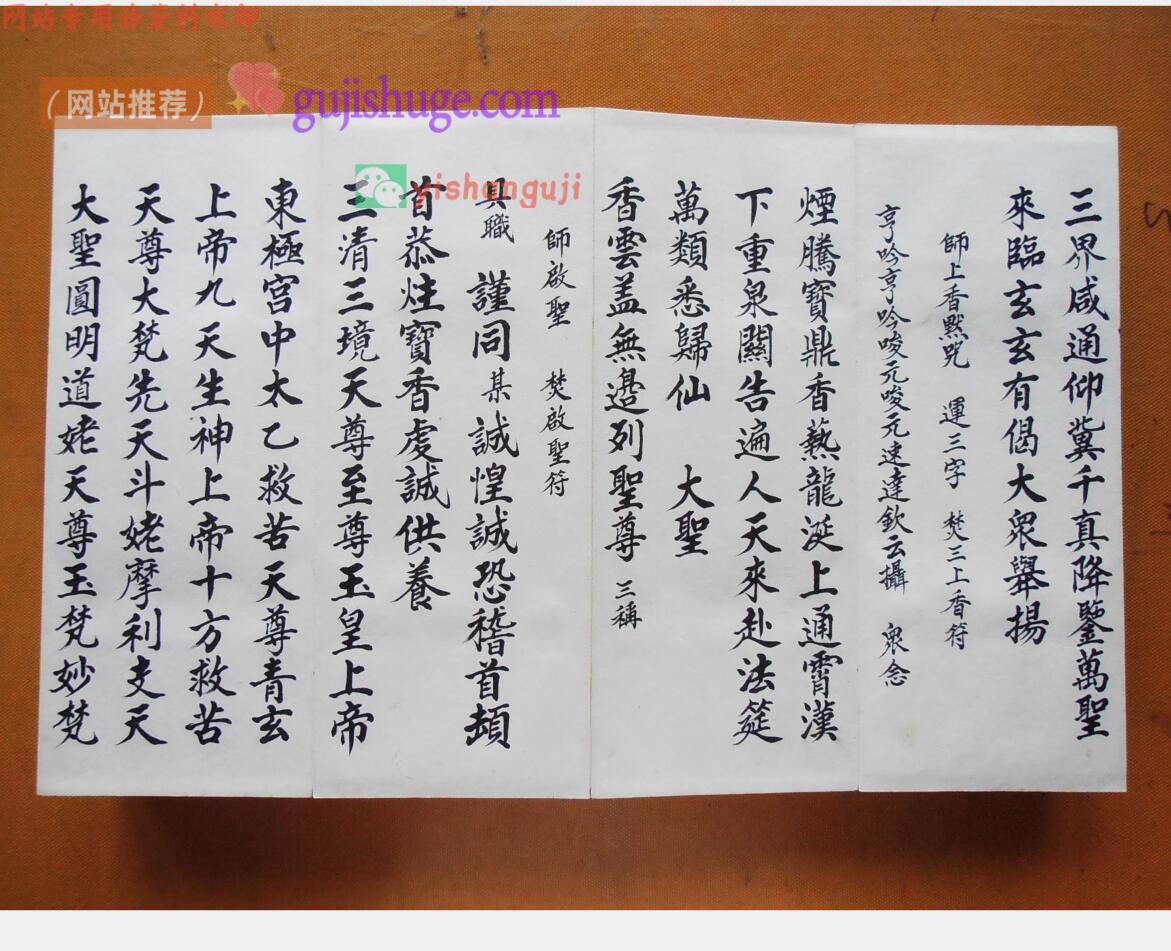 网站专用非资料水印
（网站推荐）
gujishuge.com
yishanguji
三界咸通仰冀千真降鑒萬聖
來臨玄玄有偈大衆舉揚
師上香默咒 運三字 焚三上香符
亨吟亨吟唆元唆元速達欽云攝 衆念
煙騰寶鼎香爇龍涎上通霄漢
下重泉關告遍人天來赴法筵
萬類悉歸仙 大聖
香雲盖無邊列聖尊 三稱
師啟聖 焚啟聖符
具職 謹同某誠惶誠恐稽首頓
首恭炷寶香虔誠供養
三清三境天尊至尊玉皇上帝
東極宮中太乙救苦天尊青玄
上帝九天生神上帝十方救苦
天尊大梵先天斗姥摩利支天
大聖圓明道姥天尊玉梵妙梵